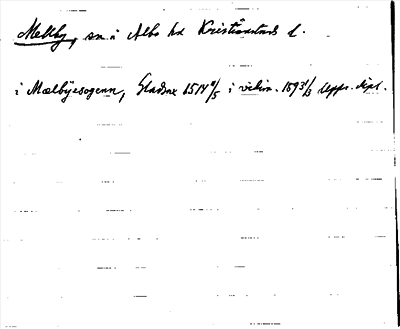 Mellby, sn i Albo hd Kristianstads l.
i Mælbyesogenn, Gladsax 1514 8/5 i vidim. 1593 1/3 Upps. dipl.